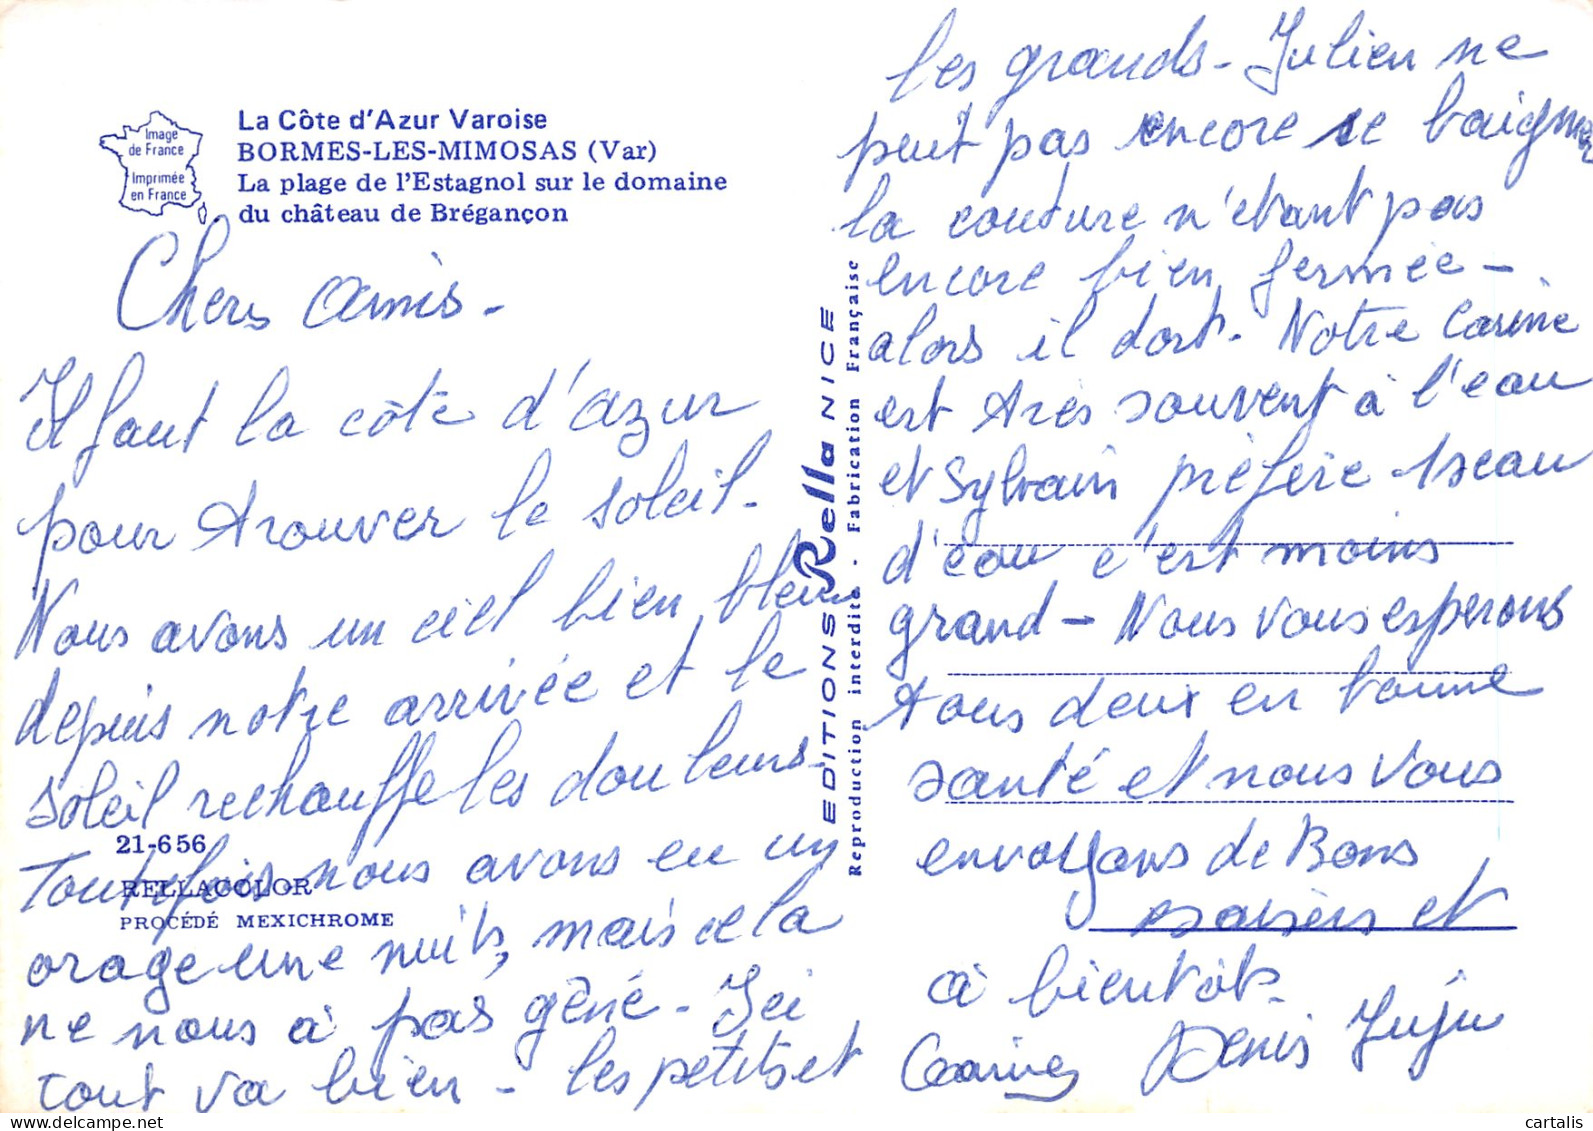 Image
de France
Imprimée
en France
La Côte d'Azur Varoise
BORMES-LES-MIMOSAS (Var)
La plage de l'Estagnol sur le domaine
du château de Brégançon
Chers amis -
Il faut la côte d'azur
pour trouver le soleil -
Nous avons un ciel bien bleu
depuis notre arrivée et le
soleil rechauffe les douleurs -
Toutefois nous avons eu un
orage une nuits, mais cela
ne nous à pas gêné - Ici
tout va bien - les petits et
21-656
RELLACOLOR
PROCÉDÉ MEXICHROME
EDITIONS Rella NICE
Reproduction interdite - Fabrication Française
les grands - Julien ne
peut pas encore se baigner
la couture n'étant pas
encore bien fermée -
alors il dort - Notre Carine
est très souvent à l'eau
et Sylvain préfère 1 seau
d'eau c'est moins
grand - Nous vous esperons
tous deux en bonne
santé et nous vous
envoyons de Bons
baisers et
à bientôt -
Denis Juju
cartalis.com